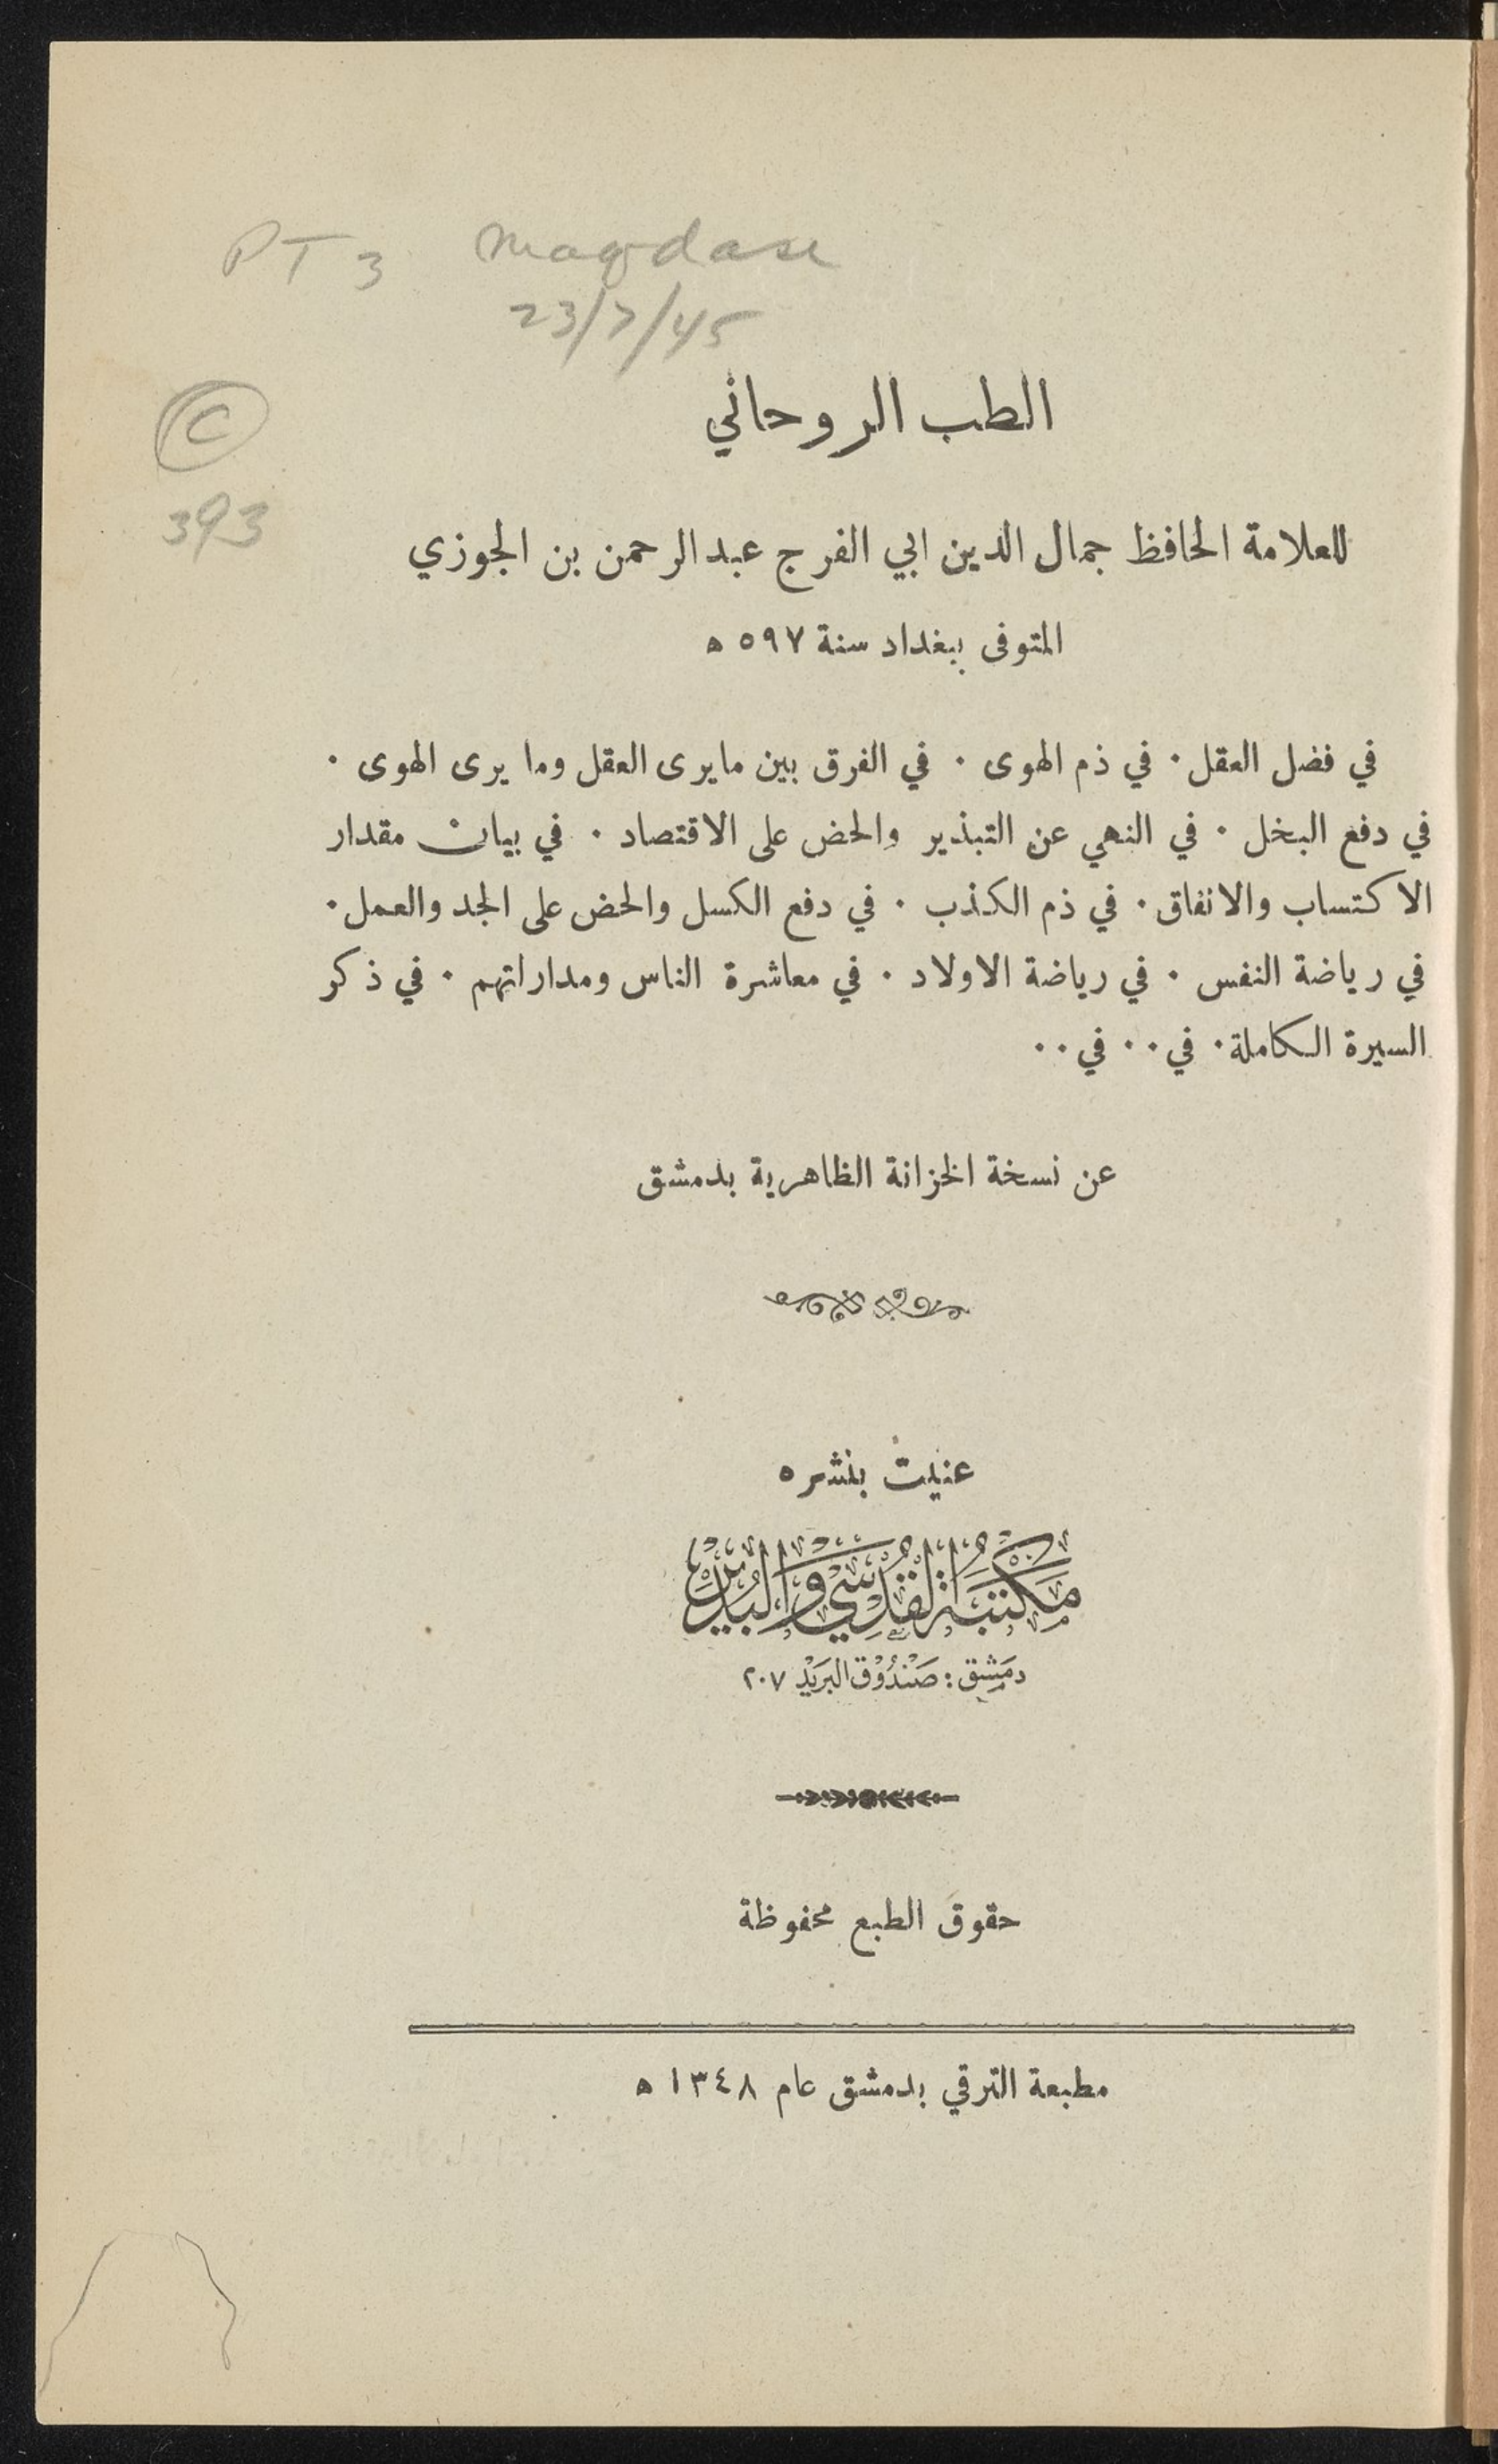 PT 3 Maqdase
23/7/45
C
393
الطب الروحاني
للعلامة الحافظ جمال الدين ابي الفرج عبد الرحمن بن الجوزي
المتوفى ببغداد سنة ٥٩٧ ه
في فضل العقل . في ذم الهوى . في الفرق بين ما يرى العقل وما يرى الهوى .
في دفع البخل . في النهي عن التبذير والحض على الاقتصاد . في بيان مقدار
الاكتساب والانفاق . في ذم الكذب . في دفع الكسل والحض على الجد والعمل .
في رياضة النفس . في رياضة الاولاد . في معاشرة الناس ومداراتهم . في ذكر
السيرة الكاملة . في . . في . .
عن نسخة الخزانة الظاهرية بدمشق
عنيت بنشره
مَكتَبَة القُدسِي وَالبُدَير
دمَشِق : صَنْدُوْق البَريْد ٢٠٧
حقوق الطبع محفوظة
مطبعة الترقي بدمشق عام ١٣٤٨ ه